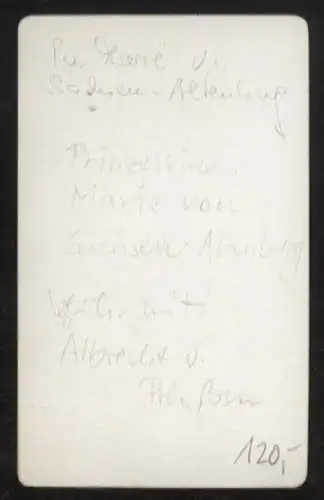 Pr. Marie v.
Sachsen-Altenburg
Prinzessin
Marie von
Sachsen-Altenburg
mit
Albrecht v.
Preußen
120,-